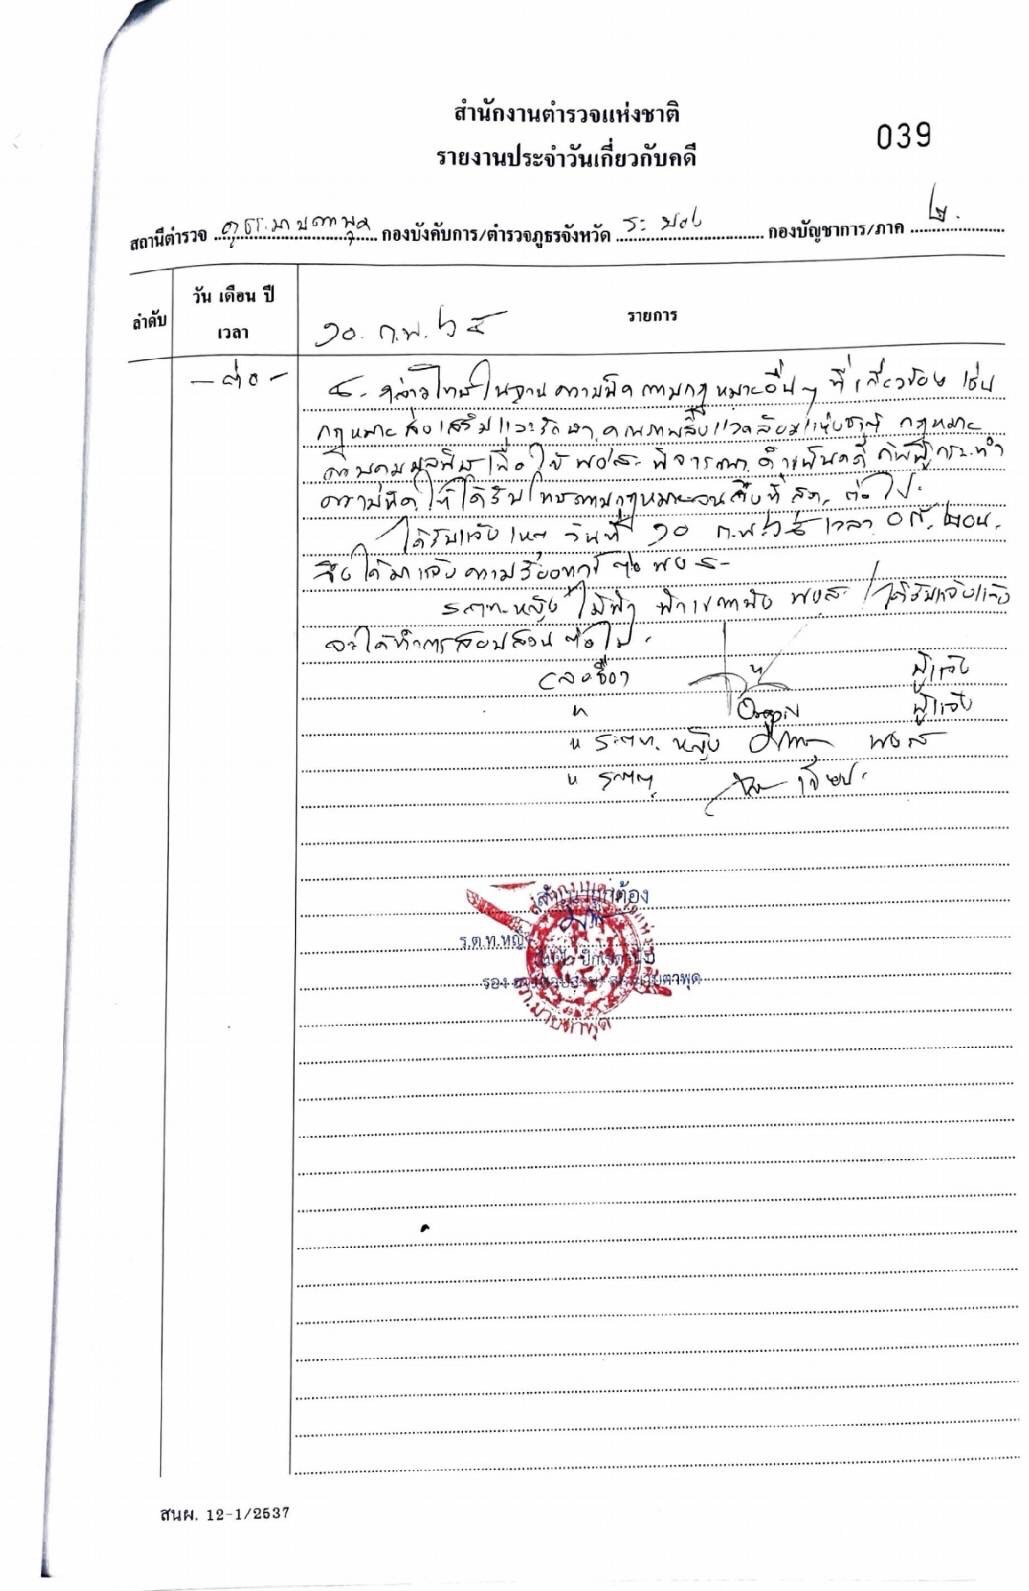 สำนักงานตำรวจแห่งชาติ
039
รายงานประจำวันเกี่ยวกับคดี
สถานีตำรวจ ภูธร.มาบตาพุด กองบังคับการ/ตำรวจภูธรจังหวัด ระยอง กองบัญชาการ/ภาค ๒.
ลำดับ
วัน เดือน ปี
เวลา
รายการ
๑๐ ก.พ. ๖๕
- ต่อ -
๕. กล่าวโทษในฐานความผิดตามกฎหมายอื่นๆ ที่เกี่ยวข้อง เช่น
กฎหมายส่งเสริมและรักษาคุณภาพสิ่งแวดล้อมแห่งชาติ กฎหมาย
ควบคุมมลพิษ เพื่อให้ พงส. พิจารณาดำเนินคดีกับผู้กระทำ
ความผิดให้ได้รับโทษตามกฎหมายจนถึงที่สุด ต่อไป.
ได้รับแจ้งเหตุ วันที่ ๑๐ ก.พ.๖๕ เวลา ๐๙.๒๐น.
จึงได้มาแจ้งความร้องทุกข์ต่อ พงส.
ร.ต.ท.หญิง ไม้ฟ้า พงส. ได้รับแจ้งแล้ว
จะได้ทำการสอบสวนต่อไป.
ลงชื่อ ผู้แจ้ง
" ผู้แจ้ง
" ร.ต.ท. หญิง พงส
"
สำเนาถูกต้อง
ร.ต.ท.หญิง
มาบตาพุด
สนผ. 12-1/2537